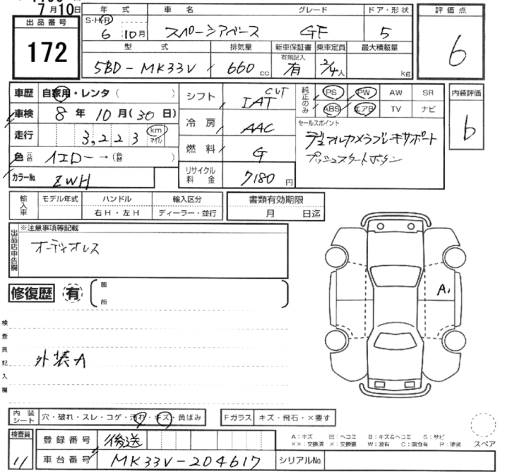 7月10日
出品番号 172
年式 車名 グレード ドア・形状 評価点
S・H・R 6年10月 スペーシアベース GF 5 6
型式 排気量 新車保証書 乗車定員 最大積載量
5BD-MK33V 660cc 有 2/4人 kg
車歴 自家用・レンタ( ) シフト CVT IAT 純正のみ PS PW AW SR 内装評価点
車検 8年10月(30日) ABS エアB TV ナビ b
冷房 AAC セールスポイント
走行 3,223 km マイル デュアルカメラブレーキサポート
色 イエロー→ 燃料 G プッシュスタートボタン
カラーNo ZWH リサイクル料金 7180円
輸入車 モデル年式 ハンドル 輸入区分 書類有効期限
右H・左H ディーラー・並行 月 日迄
※注意事項等記載
出品店申告欄 オーディオレス
修復歴 有 箇所
A1
検査員記入欄 外装A
内装シート 穴・破れ・スレ・コゲ・汚れ・キズ・黄ばみ Fガラス キズ・飛石・×要す
検査員 11 登録番号 後送
車台番号 MK33V-204617 シリアルNo
A:キズ U:ヘコミ B:キズ&ヘコミ S:サビ
××:交換済 ×:要交換 W:波有 C:腐食有 P:塗装 スペア